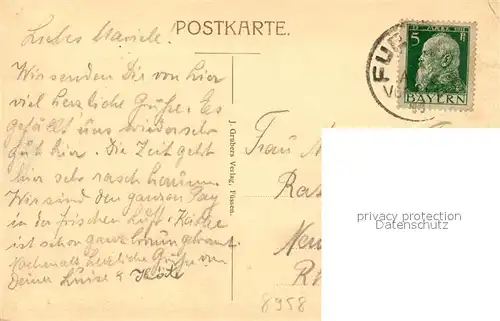 POSTKARTE.
Liebes Mariele.
Wir senden Dir von hier
viel herzliche Grüße. Es
gefällt uns wieder sehr
gut hier. Die Zeit geht
hier sehr rasch herum.
Wir sind den ganzen Tag
in der frischen Luft. Käthe
ist schon ganz braun gebrannt.
Nochmals herzliche Grüße von
Deiner Luise &
J. Grubers Verlag, Füssen.
FÜ
5
BAYERN
Frau
privacy protection
Datenschutz
8958